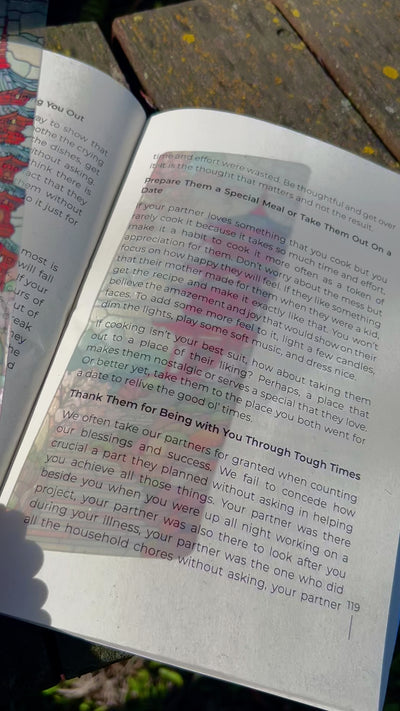 ng You Out
ay to show that
othe the crying
the dishes, get
ithout asking.
hink there is
act that they
em without
o it just for
most is
will fall
if your
urs of
ut of
eak
hey
he
d
time and effort were wasted. Be thoughtful and get over
it. It is the thought that matters and not the result.
Prepare Them a Special Meal or Take Them Out On a
Date
If your partner loves something that you cook but you
rarely cook it because it takes so much time and effort,
make it a habit to cook it more often as a token of
appreciation for them. Don't worry about the mess but
focus on how happy they will feel. If they like something
that their mother made for them when they were a kid
get the recipe and make it exactly like that. You won't
believe the amazement and joy that would show on their
faces. To add some more feel to it, light a few candles,
dim the lights, play some soft music, and dress nice.
If cooking isn't your best suit, how about taking them
out to a place of their liking? Perhaps, a place that
makes them nostalgic or serves a special that they love.
Or better yet, take them to the place you both went for
a date to relive the good ol' times.
Thank Them for Being with You Through Tough Times
We often take our partners for granted when counting
our blessings and success. We fail to concede how
crucial a part they planned without asking in helping
you achieve all those things. Your partner was there
beside you when you were up all night working on a
project, your partner was also there to look after you
during your illness, your partner was the one who did
all the household chores without asking, your partner
119